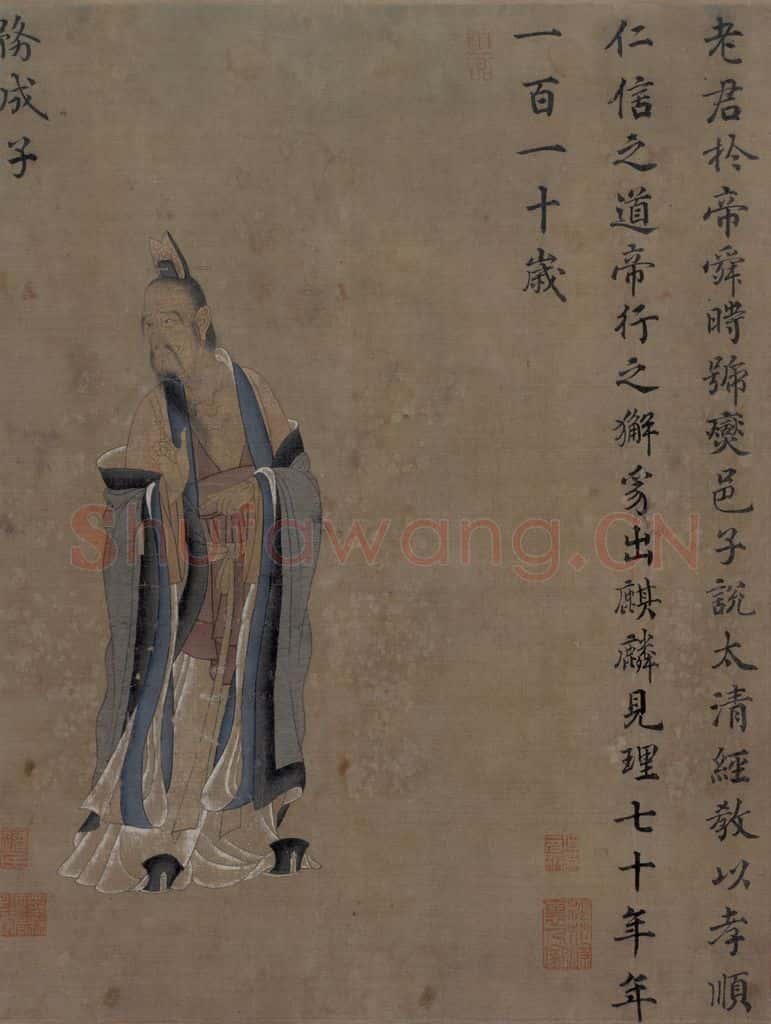 老君於帝舜時號爕邑子說太清經教以孝順
仁信之道帝行之獬豸出麒麟見理七十年年
一百一十歲
務成子
Shufawang.CN